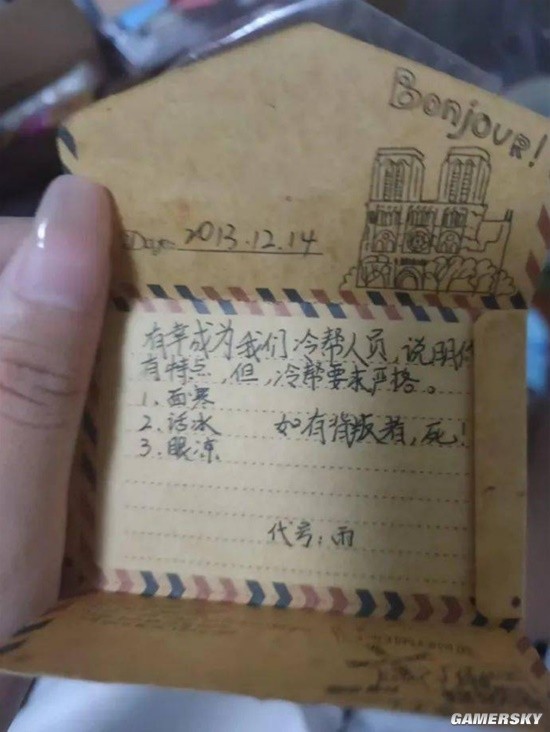 Bonjour!
Date: 2013.12.14
有幸成为我们冷帮人员，说明你
有特点，但，冷帮要求严格。
1、面寒
2、话冰 如有背叛者，死！
3、眼凉
代号：雨
GAMERSKY